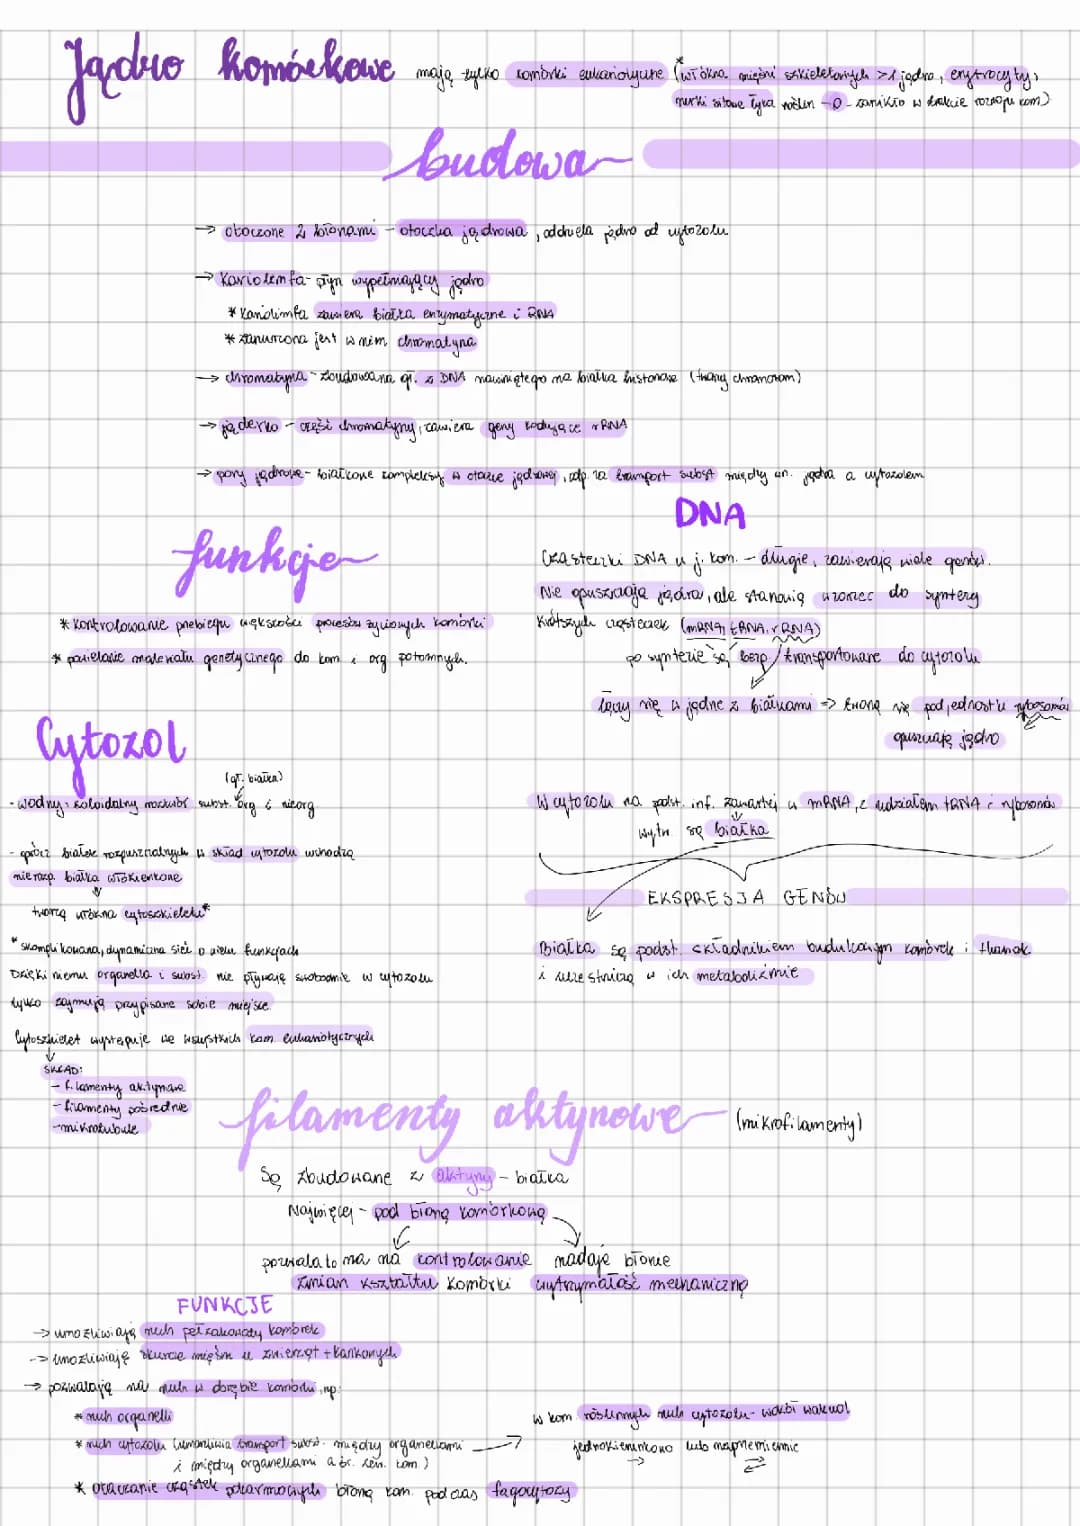 Jądro komórkowe mają tylko komórki eukariotyczne (*włókna mięśni szkieletowych >1 jądro, erytrocyty,
rurki sitowe łyka roślin - 0 - zanikło w trakcie rozwoju kom)
budowa
→ otoczone 2 błonami - otoczka jądrowa, oddziela jądro od cytozolu
→ Kariolimfa - płyn wypełniający jądro
* Kariolimfa zawiera białka enzymatyczne i RNA
* zanurzona jest w nim chromatyna
→ chromatyna - zbudowana gł. z DNA nawiniętego na białka histonowe (tworzy chromosom)
→ jąderko - część chromatyny, zawiera geny kodujące rRNA
→ pory jądrowe - białkowe kompleksy w otoczce jądrowej, odp. za transport subst między wn. jądra a cytozolem
funkcje
* kontrolowanie przebiegu większości procesów życiowych komórki
* powielanie materiału genetycznego do kom i org potomnych.
DNA
Cząsteczki DNA w j. kom. - długie, zawierają wiele genów.
Nie opuszczają jądra, ale stanowią wzorzec do syntezy
krótszych cząsteczek (mRNA, tRNA, rRNA)
po syntezie są bezp / transportowane do cytozolu
łączy się w jądrze z białkami => tworzą się podjednostki rybosomów
opuszczają jądro
W cytozolu na podst. inf. zawartej w mRNA, z udziałem tRNA i rybosomów
wytw. są białka
EKSPRESJA GENÓW
Białka są podst. składnikiem budulcowym komórek i tkanek
i uczestniczą w ich metabolizmie
Cytozol
(gł. białka)
- wodny, koloidalny roztwór subst. org i nieorg
- oprócz białek rozpuszczalnych w skład cytozolu wchodzą
nierozp. białka włókienkowe
tworzą włókna cytoszkieletu*
* skomplikowana, dynamiczna sieć o wielu funkcjach
Dzięki niemu organella i subst. nie pływają swobodnie w cytozolu
tylko zajmują przypisane sobie miejsce
Cytoszkielet występuje we wszystkich kom. eukariotycznych
SKŁAD:
- filamenty aktynowe
- filamenty pośrednie
- mikrotubule
filamenty aktynowe (mikrofilamenty)
Są zbudowane z aktyny - białka
Najwięcej - pod błoną komórkową
pozwala to na na kontrolowanie nadaje błonie
zmian kształtu komórki wytrzymałość mechaniczną
FUNKCJE
→ umożliwiają ruch pełzakowaty komórek
→ umożliwiają skurcze mięśni u zwierząt tkankowych
→ pozwalają na ruch w obrębie komórki, np:
* ruch organelli
* ruch cytozolu (umożliwia transport subst. między organellami
i między organellami a śr. zew. kom)
w kom roślinnych ruch cytozolu - wokół wakuol
jednokierunkowo lub naprzemiennie
* otaczanie cząstek pokarmowych błoną kom. podczas fagocytozy